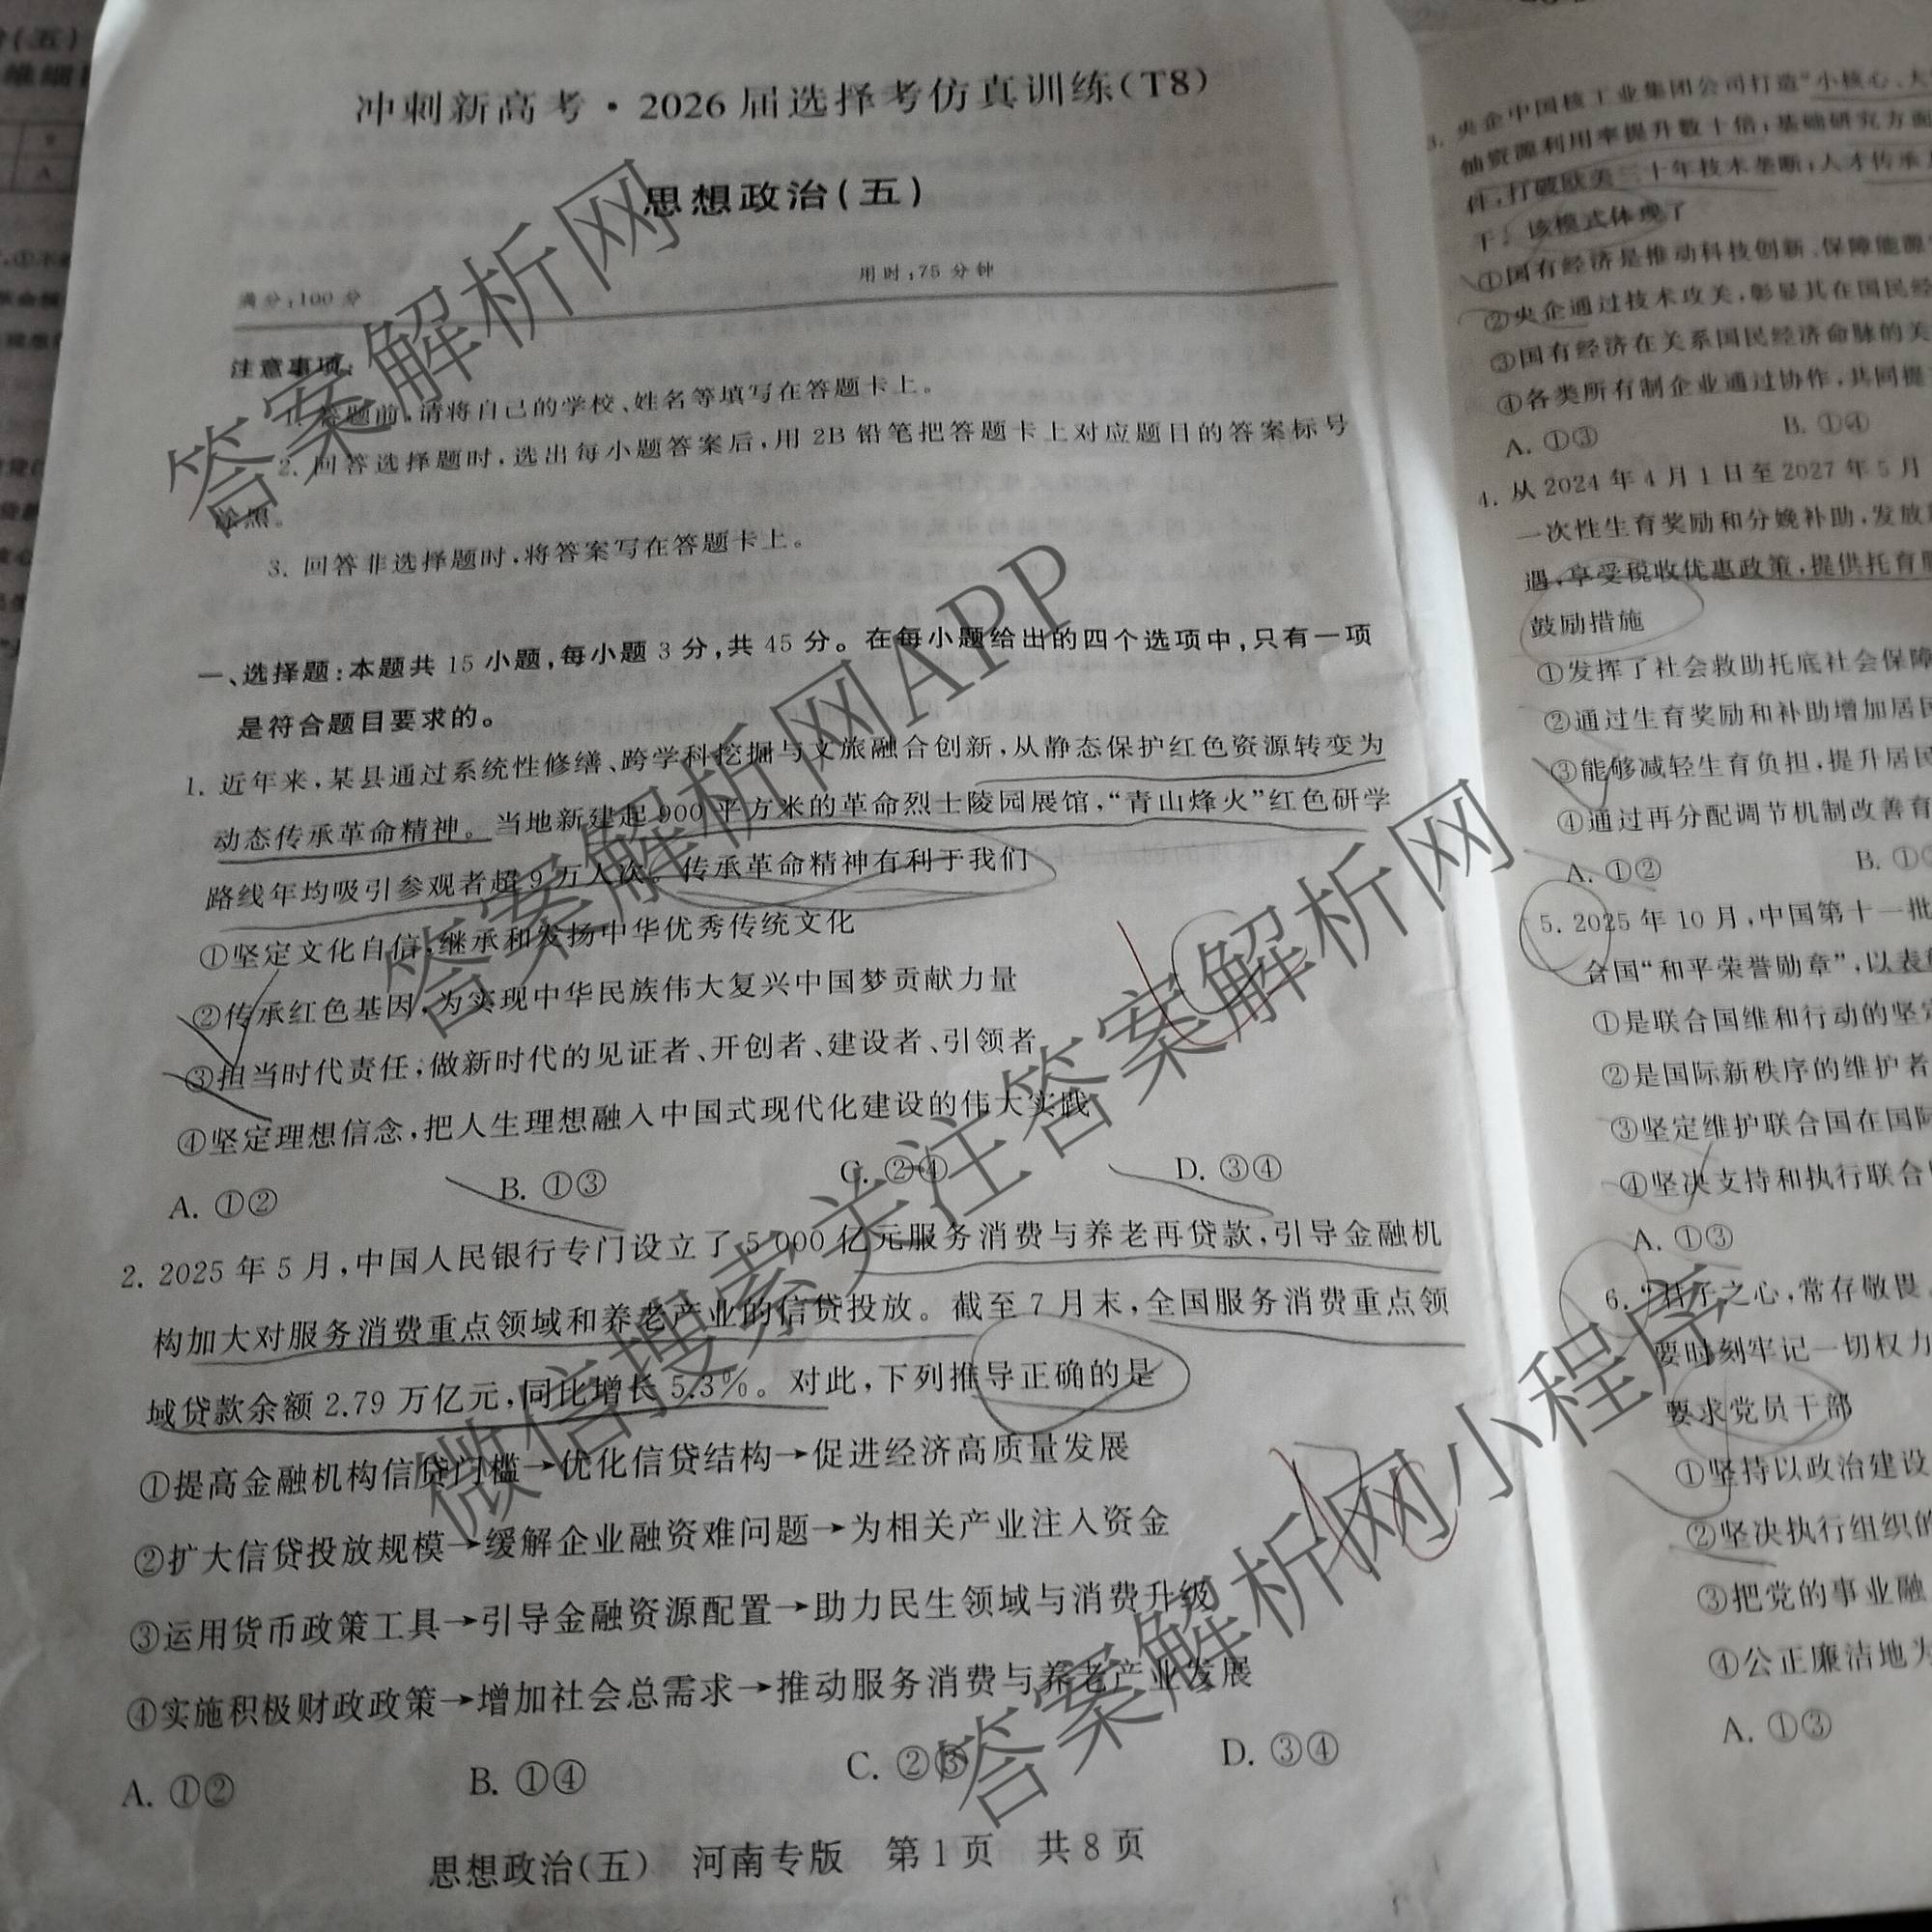 冲刺新高考·2026届选择考仿真训练(T8)
思想政治(五)
满分:100分 用时:75分钟
注意事项:
1. 答题前,请将自己的学校、姓名等填写在答题卡上。
2. 回答选择题时,选出每小题答案后,用2B铅笔把答题卡上对应题目的答案标号
涂黑。
3. 回答非选择题时,将答案写在答题卡上。
一、选择题:本题共15小题,每小题3分,共45分。在每小题给出的四个选项中,只有一项
是符合题目要求的。
1. 近年来,某县通过系统性修缮、跨学科挖掘与文旅融合创新,从静态保护红色资源转变为
动态传承革命精神。当地新建起900平方米的革命烈士陵园展馆,“青山烽火”红色研学
路线年均吸引参观者超9万人次。传承革命精神有利于我们
①坚定文化自信,继承和发扬中华优秀传统文化
②传承红色基因,为实现中华民族伟大复兴中国梦贡献力量
③担当时代责任,做新时代的见证者、开创者、建设者、引领者
④坚定理想信念,把人生理想融入中国式现代化建设的伟大实践
A. ①② B. ①③ C. ②④ D. ③④
2. 2025年5月,中国人民银行专门设立了5 000亿元服务消费与养老再贷款,引导金融机
构加大对服务消费重点领域和养老产业的信贷投放。截至7月末,全国服务消费重点领
域贷款余额2.79万亿元,同比增长5.3%。对此,下列推导正确的是
①提高金融机构信贷门槛→优化信贷结构→促进经济高质量发展
②扩大信贷投放规模→缓解企业融资难问题→为相关产业注入资金
③运用货币政策工具→引导金融资源配置→助力民生领域与消费升级
④实施积极财政政策→增加社会总需求→推动服务消费与养老产业发展
A. ①② B. ①④ C. ②③ D. ③④
思想政治(五) 河南专版 第1页 共8页
3. 央企中国核工业集团公司打造“小核心、大
铀资源利用率提升数十倍;基础研究方面
件,打破欧美三十年技术垄断;人才传承
干。该模式体现了
①国有经济是推动科技创新、保障能源
②央企通过技术攻关,彰显其在国民经
③国有经济在关系国民经济命脉的关
④各类所有制企业通过协作,共同提
A. ①③ B. ①④
4. 从2024年4月1日至2027年5月
一次性生育奖励和分娩补助,发放
遇,享受税收优惠政策,提供托育服
鼓励措施
①发挥了社会救助托底社会保障
②通过生育奖励和补助增加居民
③能够减轻生育负担,提升居民
④通过再分配调节机制改善育
A. ①② B. ①
5. 2025年10月,中国第十一批
合国“和平荣誉勋章”,以表
①是联合国维和行动的坚定
②是国际新秩序的维护者
③坚定维护联合国在国际
④坚决支持和执行联合
A. ①③
6. “君子之心,常存敬畏
要时刻牢记一切权力
要求党员干部
①坚持以政治建设
②坚决执行组织的
③把党的事业融
④公正廉洁地为
A. ①③
答案解析网
答案解析网APP
微信搜索关注答案解析网
答案解析网小程序